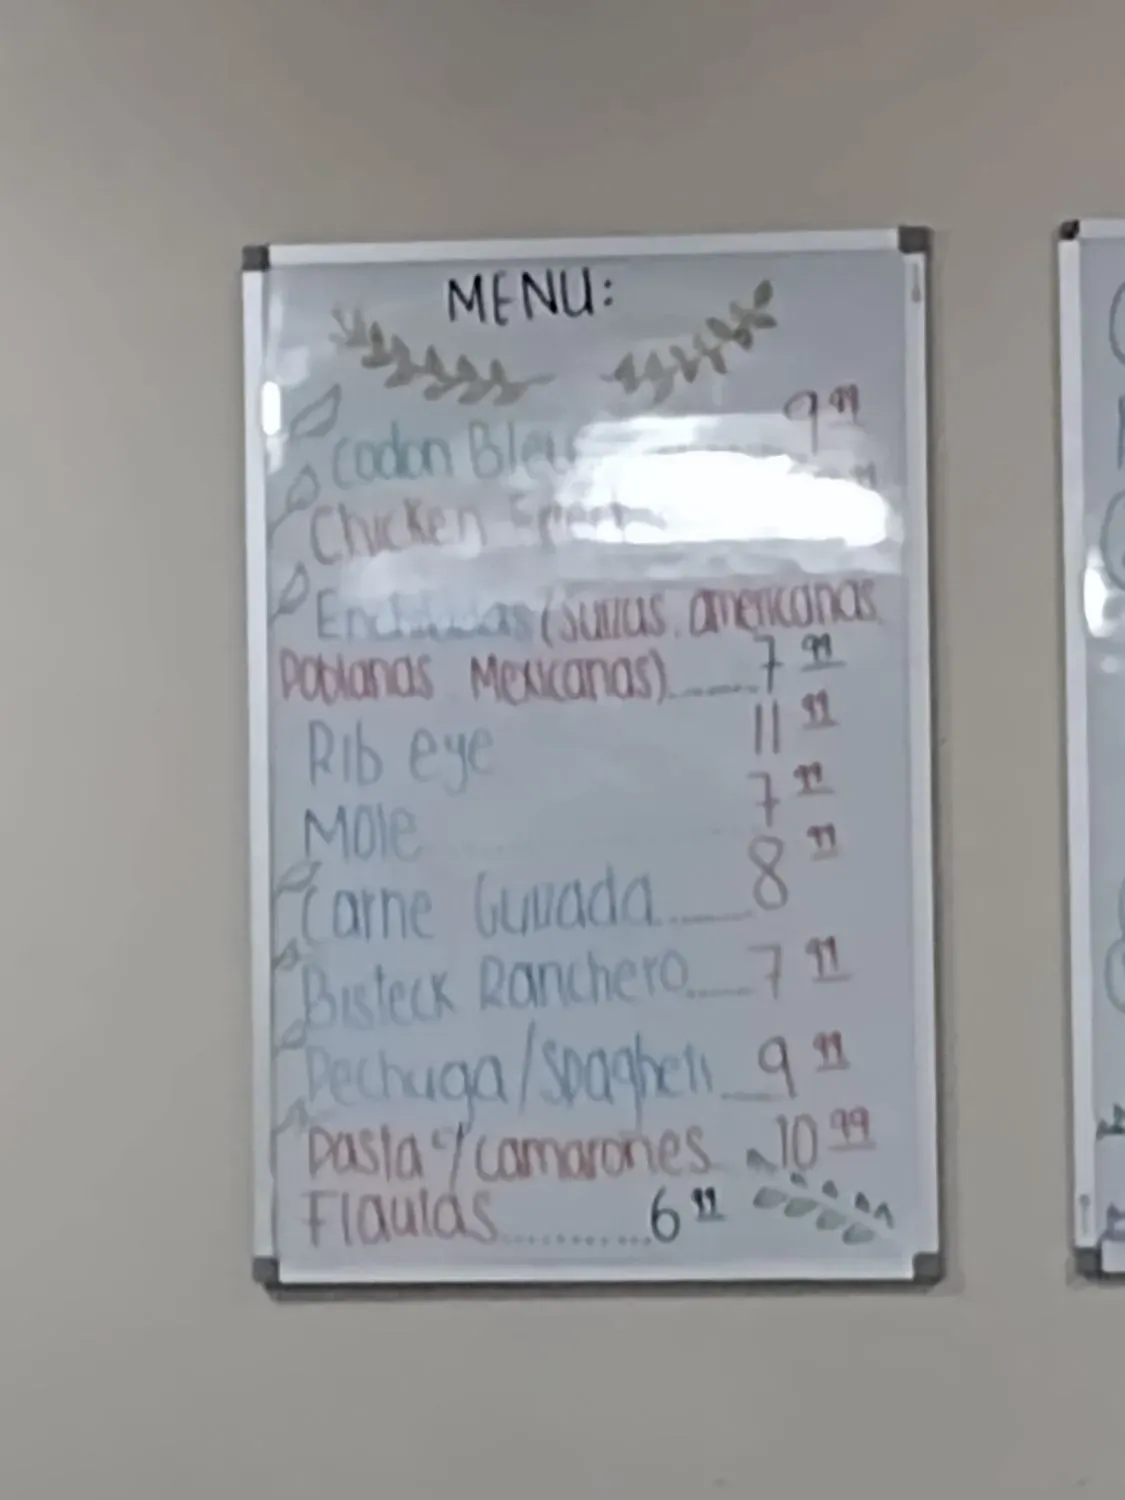 MENU:
Codon Bleu 9 99
Chicken
Enchiladas (Suizas, americanas,
Poblanas, Mexicanas)........7 99
Rib eye 11 99
Mole 7 99
Carne Guisada........8 99
Bisteck Ranchero........7 99
Pechuga/Spagheti....9 99
Pasta c/camarones 10 99
Flautas...........6 99